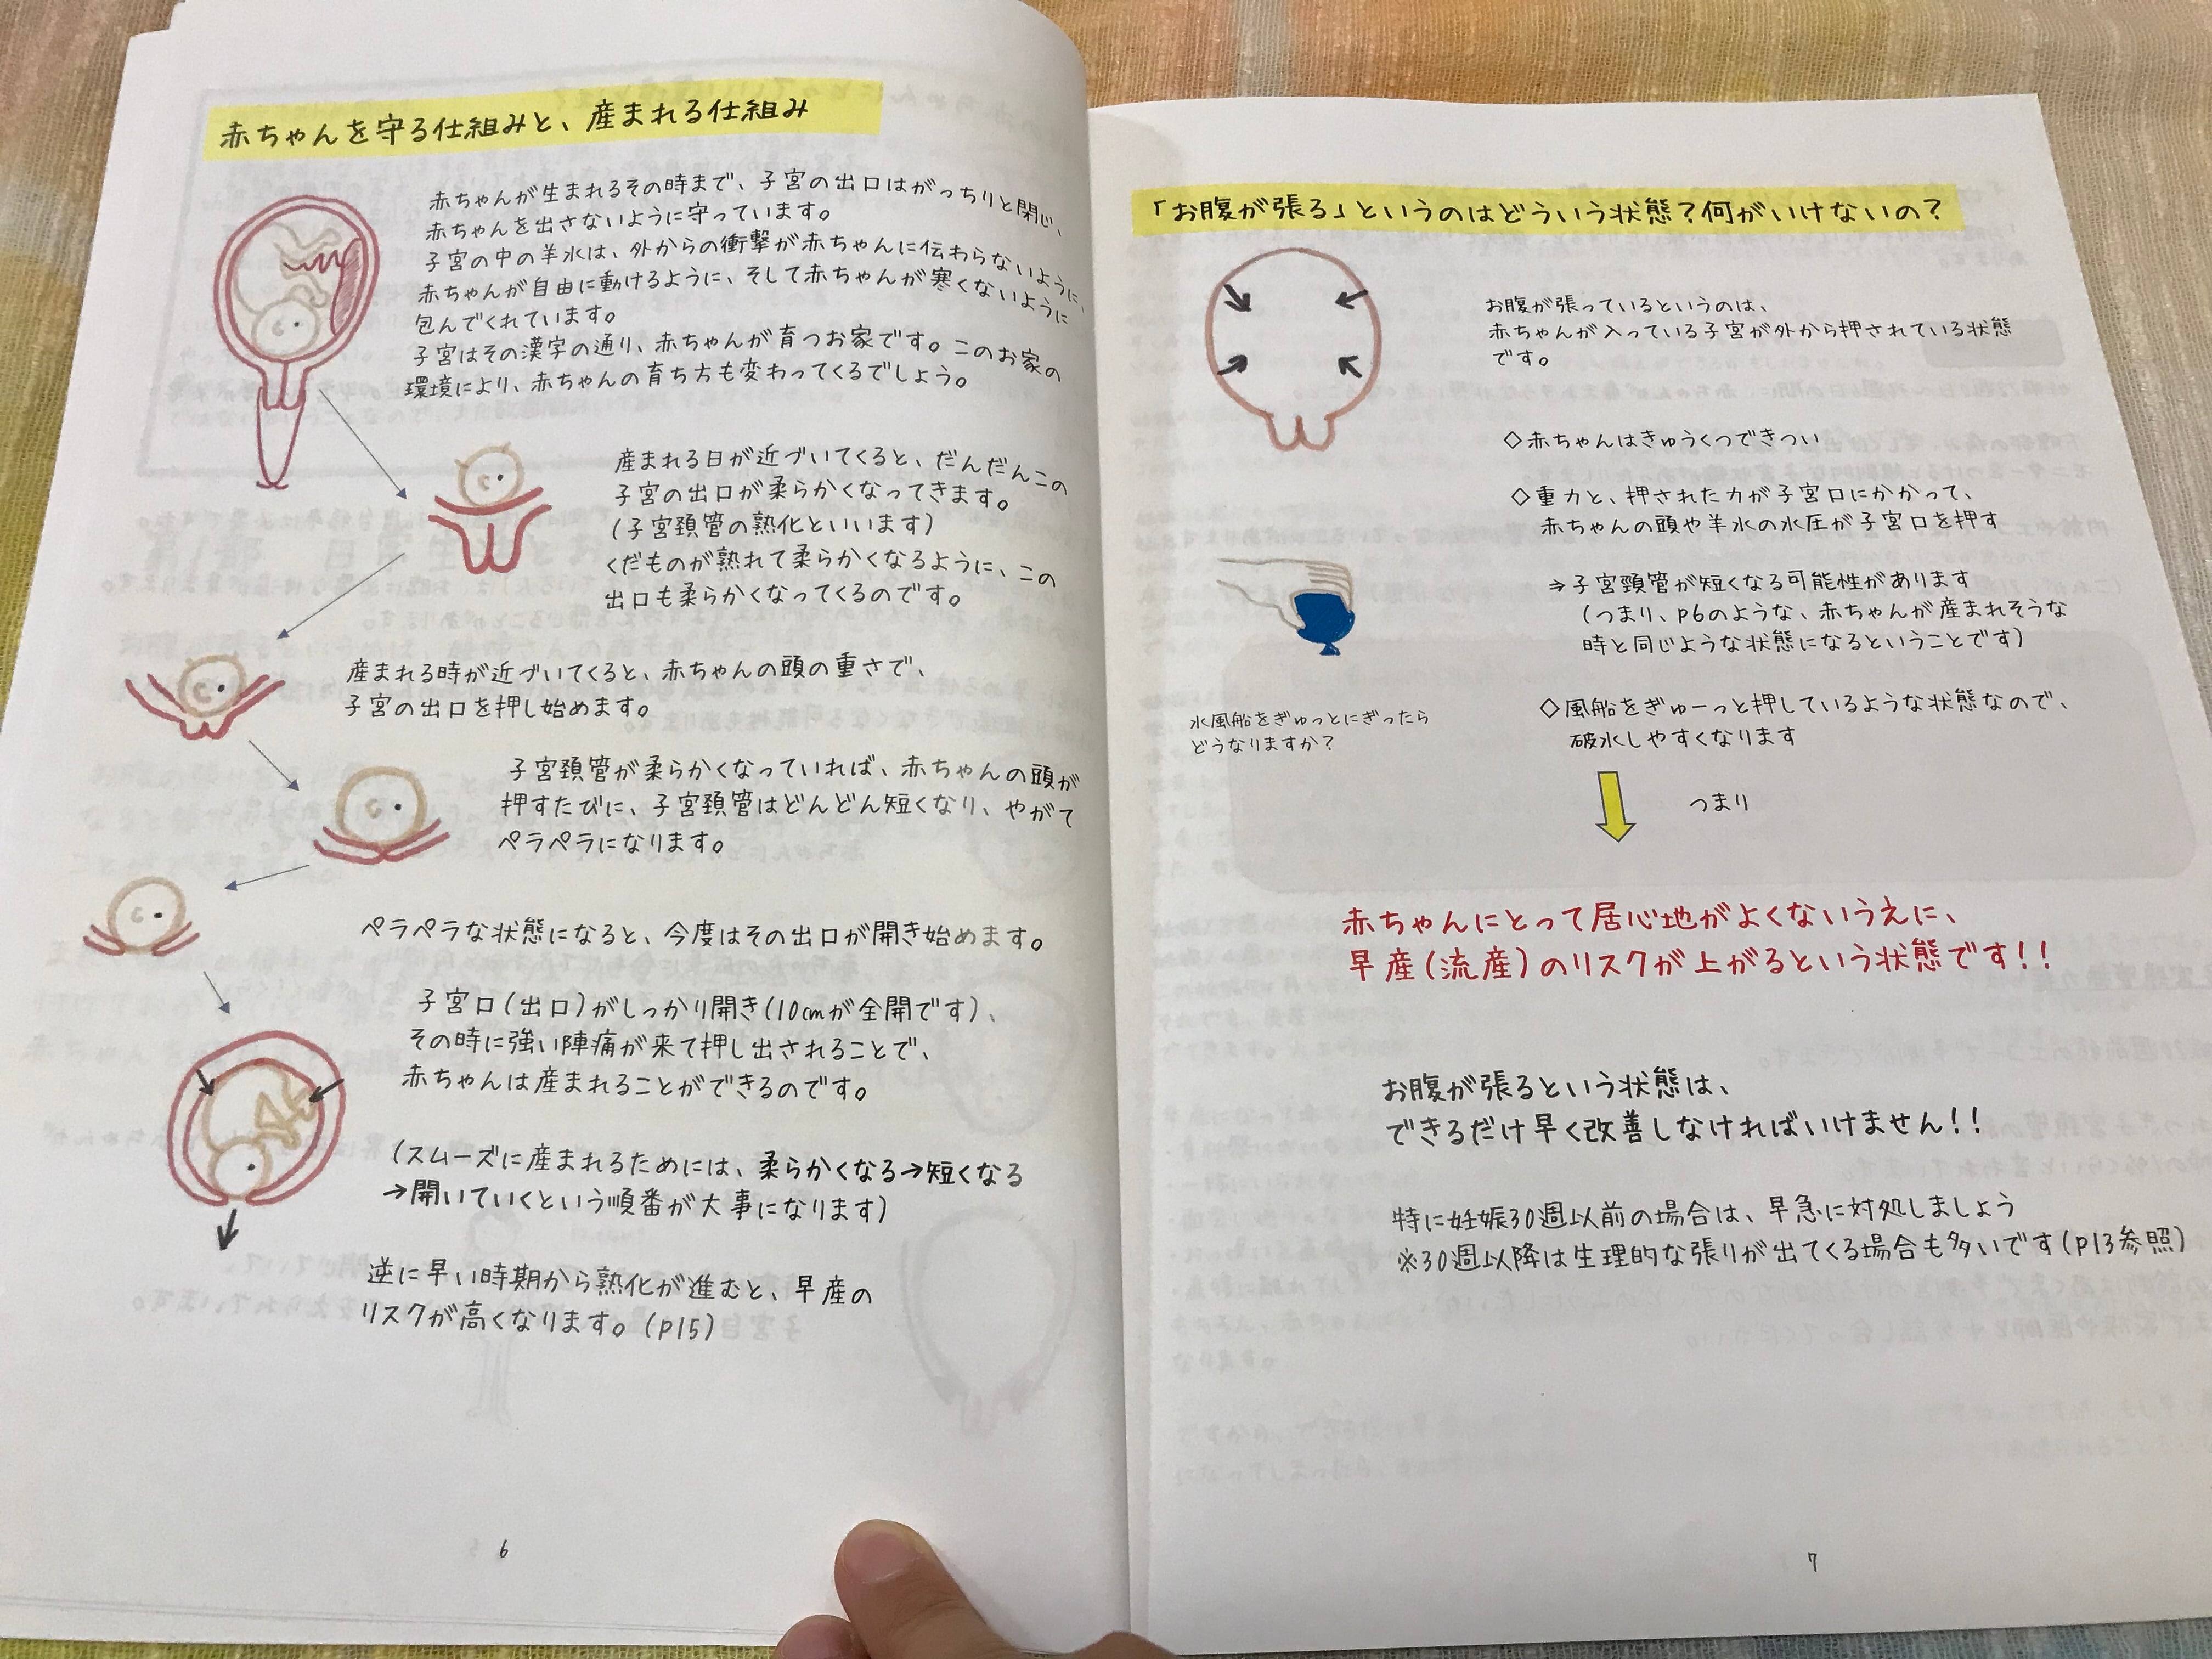 赤ちゃんを守る仕組みと、産まれる仕組み
赤ちゃんが生まれるその時まで、子宮の出口はがっちりと閉じ、
赤ちゃんを出さないように守っています。
子宮の中の羊水は、外からの衝撃が赤ちゃんに伝わらないように、
赤ちゃんが自由に動けるように、そして赤ちゃんが寒くないように
包んでくれています。
子宮はその漢字の通り、赤ちゃんが育つお家です。このお家の
環境により、赤ちゃんの育ち方も変わってくるでしょう。
産まれる日が近づいてくると、だんだんこの
子宮の出口が柔らかくなってきます。
(子宮頚管の熟化といいます)
くだものが熟れて柔らかくなるように、この
出口も柔らかくなってくるのです。
産まれる時が近づいてくると、赤ちゃんの頭の重さで、
子宮の出口を押し始めます。
子宮頚管が柔らかくなっていれば、赤ちゃんの頭が
押すたびに、子宮頚管はどんどん短くなり、やがて
ペラペラになります。
ペラペラな状態になると、今度はその出口が開き始めます。
子宮口(出口)がしっかり開き(10cmが全開です)、
その時に強い陣痛が来て押し出されることで、
赤ちゃんは産まれることができるのです。
(スムーズに産まれるためには、柔らかくなる→短くなる
→開いていくという順番が大事になります)
逆に早い時期から熟化が進むと、早産の
リスクが高くなります。(p15)
6
「お腹が張る」というのはどういう状態?何がいけないの?
お腹が張っているというのは、
赤ちゃんが入っている子宮が外から押されている状態
です。
◇赤ちゃんはきゅうくつできつい
◇重力と、押された力が子宮口にかかって、
赤ちゃんの頭や羊水の水圧が子宮口を押す
⇒子宮頚管が短くなる可能性があります
(つまり、p6のような、赤ちゃんが産まれそうな
時と同じような状態になるということです)
水風船をぎゅっとにぎったら
どうなりますか?
◇風船をぎゅーっと押しているような状態なので、
破水しやすくなります
つまり
赤ちゃんにとって居心地がよくないうえに、
早産(流産)のリスクが上がるという状態です!!
お腹が張るという状態は、
できるだけ早く改善しなければいけません!!
特に妊娠30週以前の場合は、早急に対処しましょう
※30週以降は生理的な張りが出てくる場合も多いです(p13参照)
7